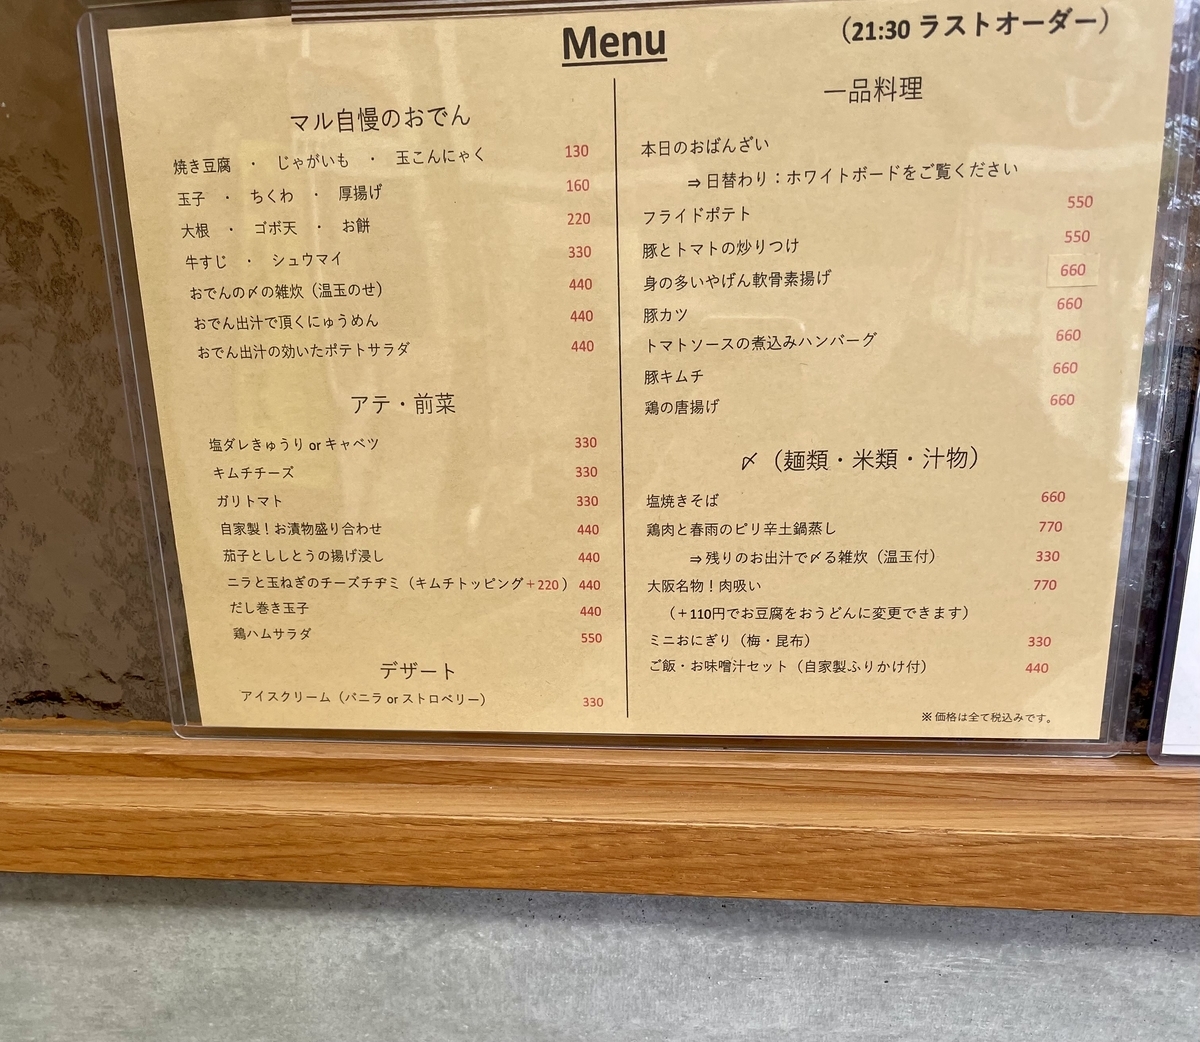 Menu
（21:30 ラストオーダー）
マル自慢のおでん
焼き豆腐 ・ じゃがいも ・ 玉こんにゃく 130
玉子 ・ ちくわ ・ 厚揚げ 160
大根 ・ ゴボ天 ・ お餅 220
牛すじ ・ シュウマイ 330
おでんの〆の雑炊（温玉のせ） 440
おでん出汁で頂くにゅうめん 440
おでん出汁の効いたポテトサラダ 440
アテ・前菜
塩ダレきゅうり or キャベツ 330
キムチチーズ 330
ガリトマト 330
自家製！お漬物盛り合わせ 440
茄子とししとうの揚げ浸し 440
ニラと玉ねぎのチーズチヂミ（キムチトッピング＋220） 440
だし巻き玉子 440
鶏ハムサラダ 550
デザート
アイスクリーム（バニラ or ストロベリー） 330
一品料理
本日のおばんざい
⇒ 日替わり：ホワイトボードをご覧ください
フライドポテト 550
豚とトマトの炒りつけ 550
身の多いやげん軟骨素揚げ 660
豚カツ 660
トマトソースの煮込みハンバーグ 660
豚キムチ 660
鶏の唐揚げ 660
〆（麺類・米類・汁物）
塩焼きそば 660
鶏肉と春雨のピリ辛土鍋蒸し 770
⇒ 残りのお出汁で〆る雑炊（温玉付） 330
大阪名物！肉吸い 770
（＋110円でお豆腐をおうどんに変更できます）
ミニおにぎり（梅・昆布） 330
ご飯・お味噌汁セット（自家製ふりかけ付） 440
※ 価格は全て税込みです。